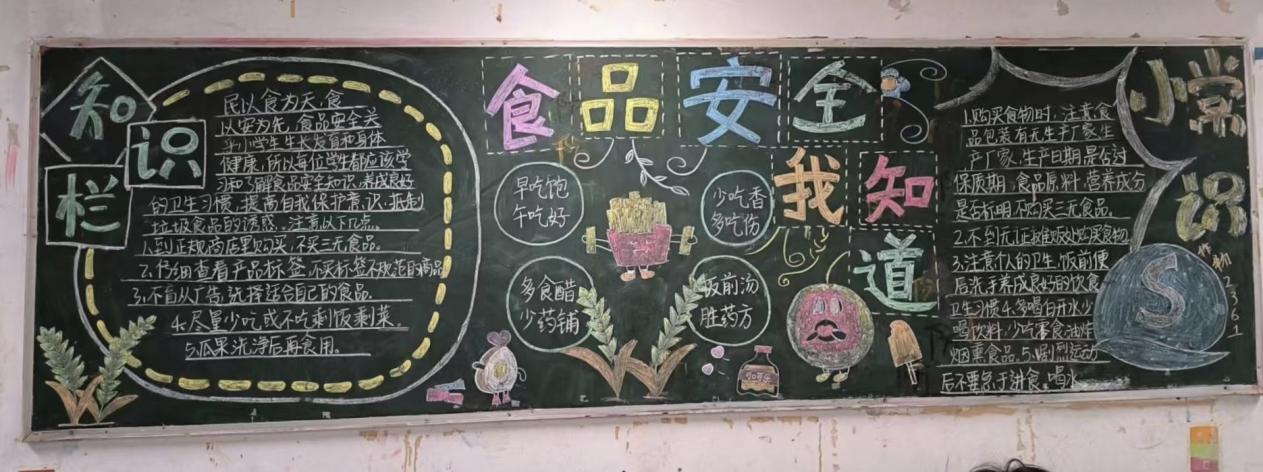 知识栏
民以食为天,食
以安为先,食品安全关
乎小学生生长发育和身体
健康,所以每位学生都应该学
习和了解食品安全知识,养成良好
的卫生习惯,提高自我保护意识,抵制
垃圾食品的诱惑,注意以下几点。
1.到正规商店里购买,不买三无食品。
2.仔细查看产品标签,不买标签不规范的商品
3.不盲从广告,选择适合自己的食品。
4.尽量少吃或不吃剩饭剩菜
5.瓜果洗净后再食用。
食品安全
我知道
早吃饱
午吃好
少吃香
多吃伤
多食醋
少药铺
饭前汤
胜药方
小常识
1.购买食物时,注意食
品包装有无生产厂家生
产厂家,生产日期,是否过
保质期,食品原料,营养成分
是否标明,不购买三无食品。
2.不到无证摊贩处购买食物
3.注意个人的卫生,饭前便
后洗手养成良好的饮食
卫生习惯4.多喝白开水少
喝饮料,少吃零食油炸
烟熏食品.5.剧烈运动
后不要急于进食、喝水
S
2361